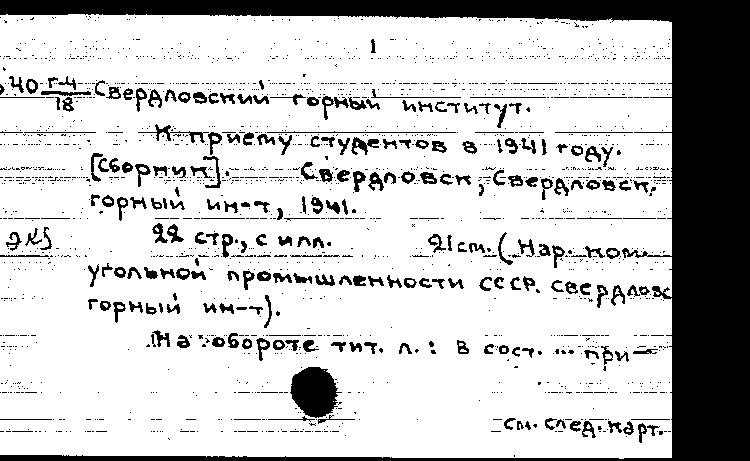 1
40 г-4/18 Свердловский горный институт.
К приему студентов в 1941 году.
[Сборник]. Свердловск, Свердловск.
горный ин-т, 1941.
22 стр., с илл. 21 см. (Нар. ком.
угольной промышленности СССР. Свердловс
горный ин-т).
На обороте тит. л.: В сост. ... при-
см. след. карт.